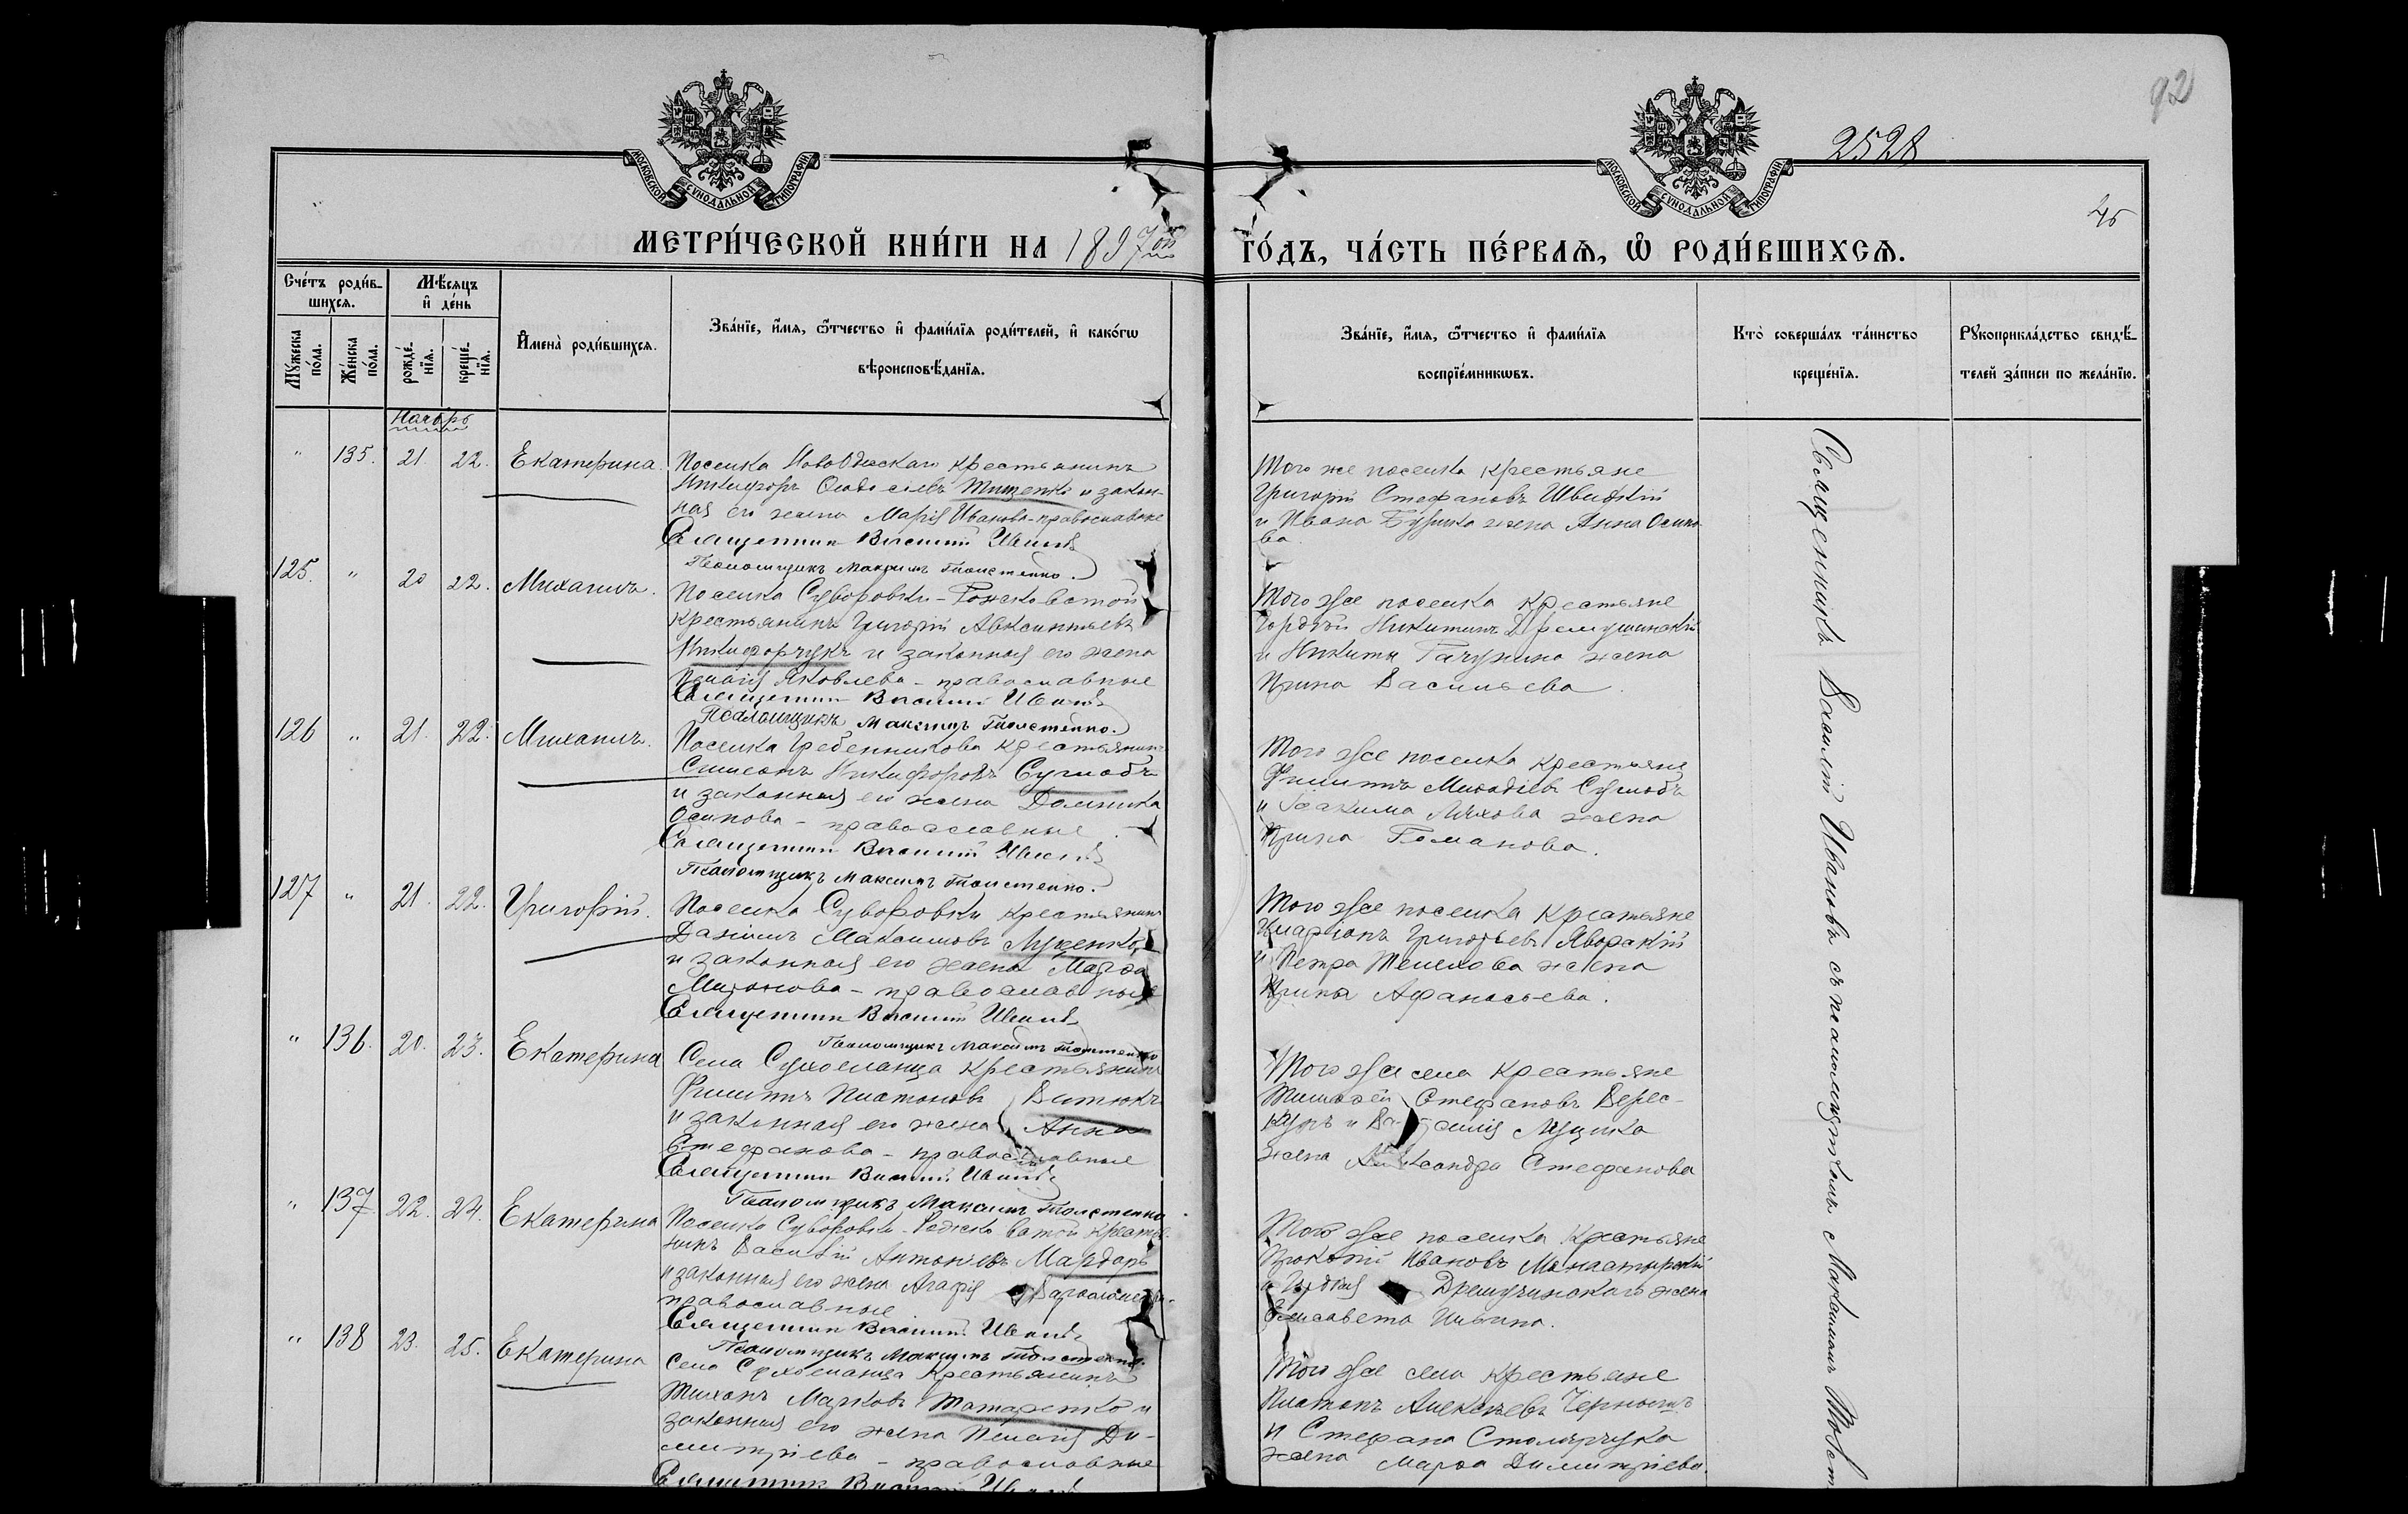 92
2528
45
МОСКОВСКОЙ СѴНОДАЛЬНОЙ ТИПОГРАФІИ
МОСКОВСКОЙ СѴНОДАЛЬНОЙ ТИПОГРАФІИ
МЕТРИ́ЧЕСКОЙ КНИ́ГИ НА 1897ой
ГО́ДЪ, ЧА́СТЬ ПЕ́РВАѦ, Ѡ РОДИ́ВШИХСѦ.
Сче́тъ роди́в-
шихсѧ.
Мѣ́сѧцъ
и҆ де́нь
Мꙋ́жеска
по́ла.
Же́нска
по́ла.
рожде́-
нїѧ.
креще́-
нїѧ.
И҆мена̀ роди́вшихсѧ.
Зва́нїе, и҆́мѧ, ѻ҆́тчество и҆ фами́лїѧ роди́телей, и҆ како́гѡ
вѣроисповѣ́данїѧ.
Зва́нїе, и҆́мѧ, ѻ҆́тчество и҆ фами́лїѧ
воспрїе́мникѡвъ.
Кто̀ соверша́лъ та́инство
креще́нїѧ.
Рꙋкоприкла́дство свидѣ́-
телей за́писи по жела́нїю.
Ноябрь
" 135. 21. 22. Екатерина.
Поселка Новоодесскаго крестьянинъ
Никифоръ Тищенко и закон-
ная его жена Марія Иванова - православные
Священникъ Василій Ивановъ
Псаломщикъ Максимъ Толстенко.
Того же поселка крестьяне
Григорій Стефановъ Швидкій
и Ивана жена Анна Осипо
ва.
125. " 20 22. Михаилъ.
Поселка Суворовки-
крестьянинъ Григорій Авксентьевъ
Никифорчукъ и законная его жена
Пелагія Яковлева - православные
Священникъ Василій Ивановъ
Псаломщикъ Максимъ Толстенко.
Того же поселка крестьяне
Гордѣй Никитинъ
и Никиты жена
Ирина Васильева.
126 " 21. 22. Михаилъ.
Поселка Гребенникова крестьянинъ
Симеонъ Никифоровъ
и законная его жена Домника
Осипова - православные
Священникъ Василій Ивановъ
Псаломщикъ Максимъ Толстенко.
Того же поселка крестьяне
Филиппъ
и Іоакима Ляхова жена
Ирина Романова.
127 " 21. 22. Григорій.
Поселка Суворовки крестьянинъ
Даніилъ Максимовъ Луценко
и законная его жена Марѳа
Миронова - православные
Священникъ Василій Ивановъ
Псаломщикъ Максимъ Толстенко
Того же поселка крестьяне
Иларіонъ Григорьевъ Яворскій
и Петра Телехова жена
Ирина Афанасьева.
" 136. 20. 23. Екатерина
Села Сухоеланца крестьянинъ
Филиппъ Платоновъ Витюкъ
и законная его жена Анна
Стефанова - православные
Священникъ Василій Ивановъ
Псаломщикъ Максимъ Толстенко.
Того же села крестьяне
Тимофей Стефановъ Верес-
жена Александра Стефанова
" 137. 22. 24. Екатерина
Поселка Суворовки-
Василій Антоньевъ Мардарь
и законная его жена Агафія
православные
Священникъ Василій Ивановъ
Псаломщикъ Максимъ Толстенко.
Того же поселка крестьяне
Прокопій Ивановъ Монастырскій
и Гордѣя жена
Елисавета Ильина.
" 138 23. 25. Екатерина
Села Сухоеланца крестьянинъ
Тихонъ Марковъ Татаренко и
законная его жена Пелагія Ди-
митріева - православные
Священникъ Василій Ивановъ
Того же села крестьяне
Платонъ Алексѣевъ Чернышъ
и Стефана Столярчука
жена Марѳа Димитріева.
Священникъ Василій Ивановъ съ псаломщикомъ Максимомъ Толст